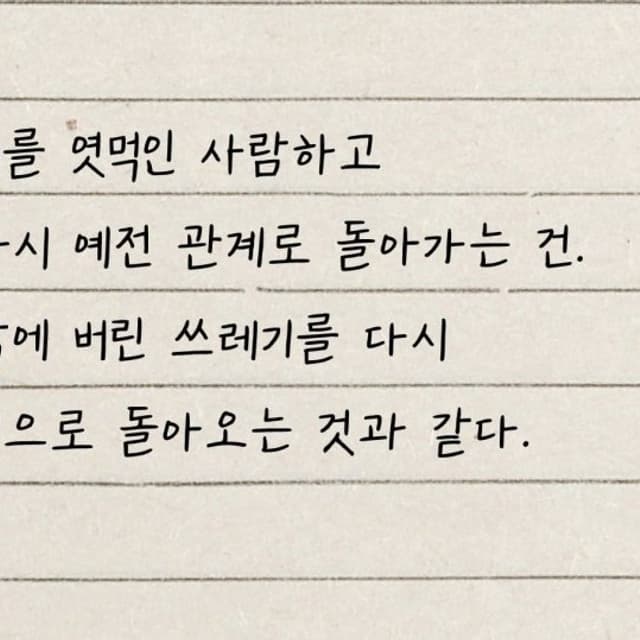 를 엿먹인 사람하고
시 예전 관계로 돌아가는 건.
에 버린 쓰레기를 다시
으로 돌아오는 것과 같다.